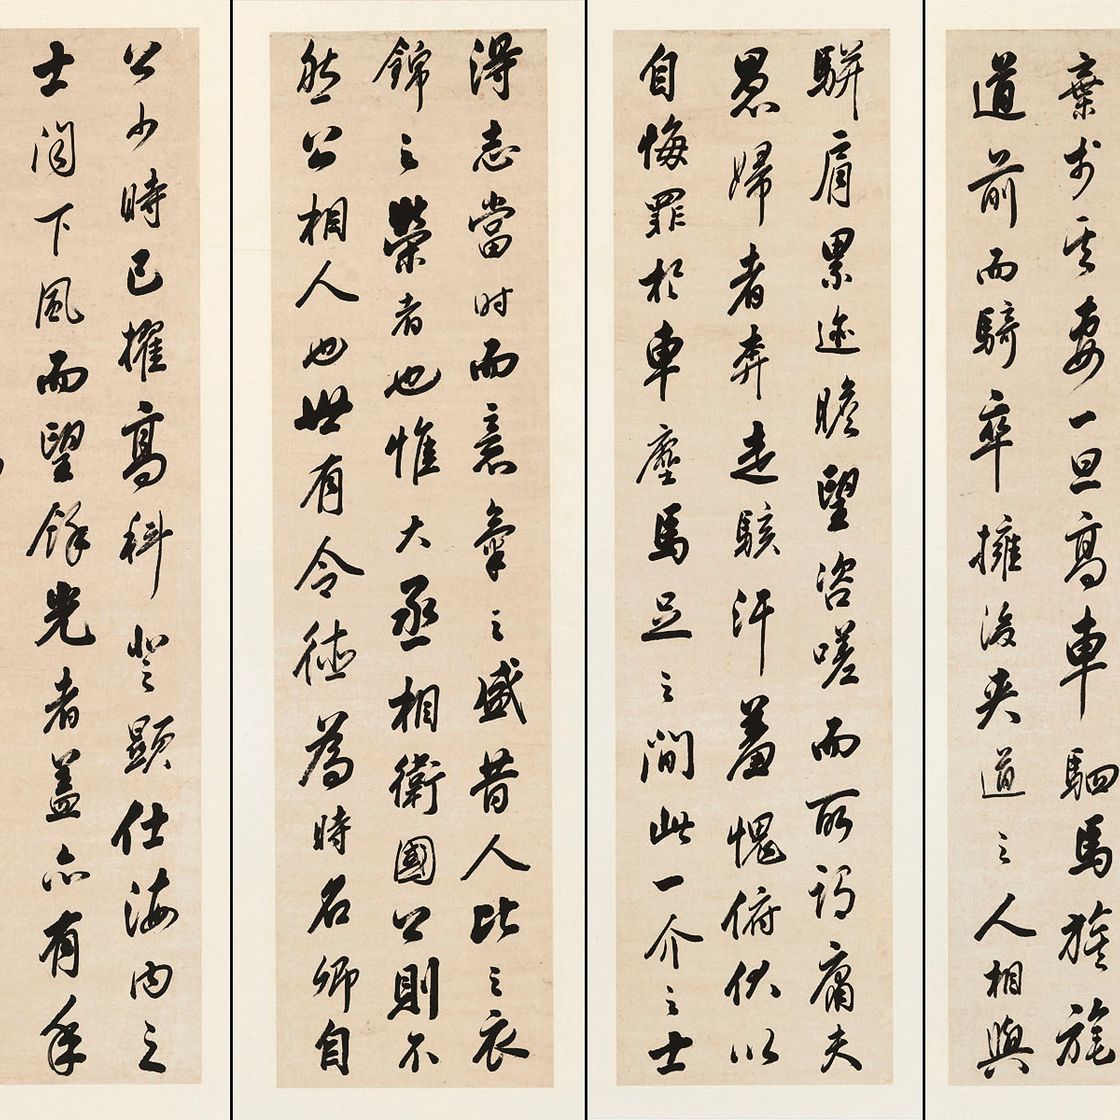 棄於其妻一旦高車駟馬旗旄
道前而騎卒擁後夾道之人相與
駢肩累迹瞻望咨嗟而所謂庸夫
愚婦者奔走駭汗羞愧俯伏以
自悔罪於車塵馬足之間此一介之士
得志當时而意氣之盛昔人比之衣
錦之榮者也惟大丞相衛國公則不
然公相人也世有令德為時名卿自
公少時已擢高科登顯仕海內之
士聞下風而望餘光者蓋亦有年